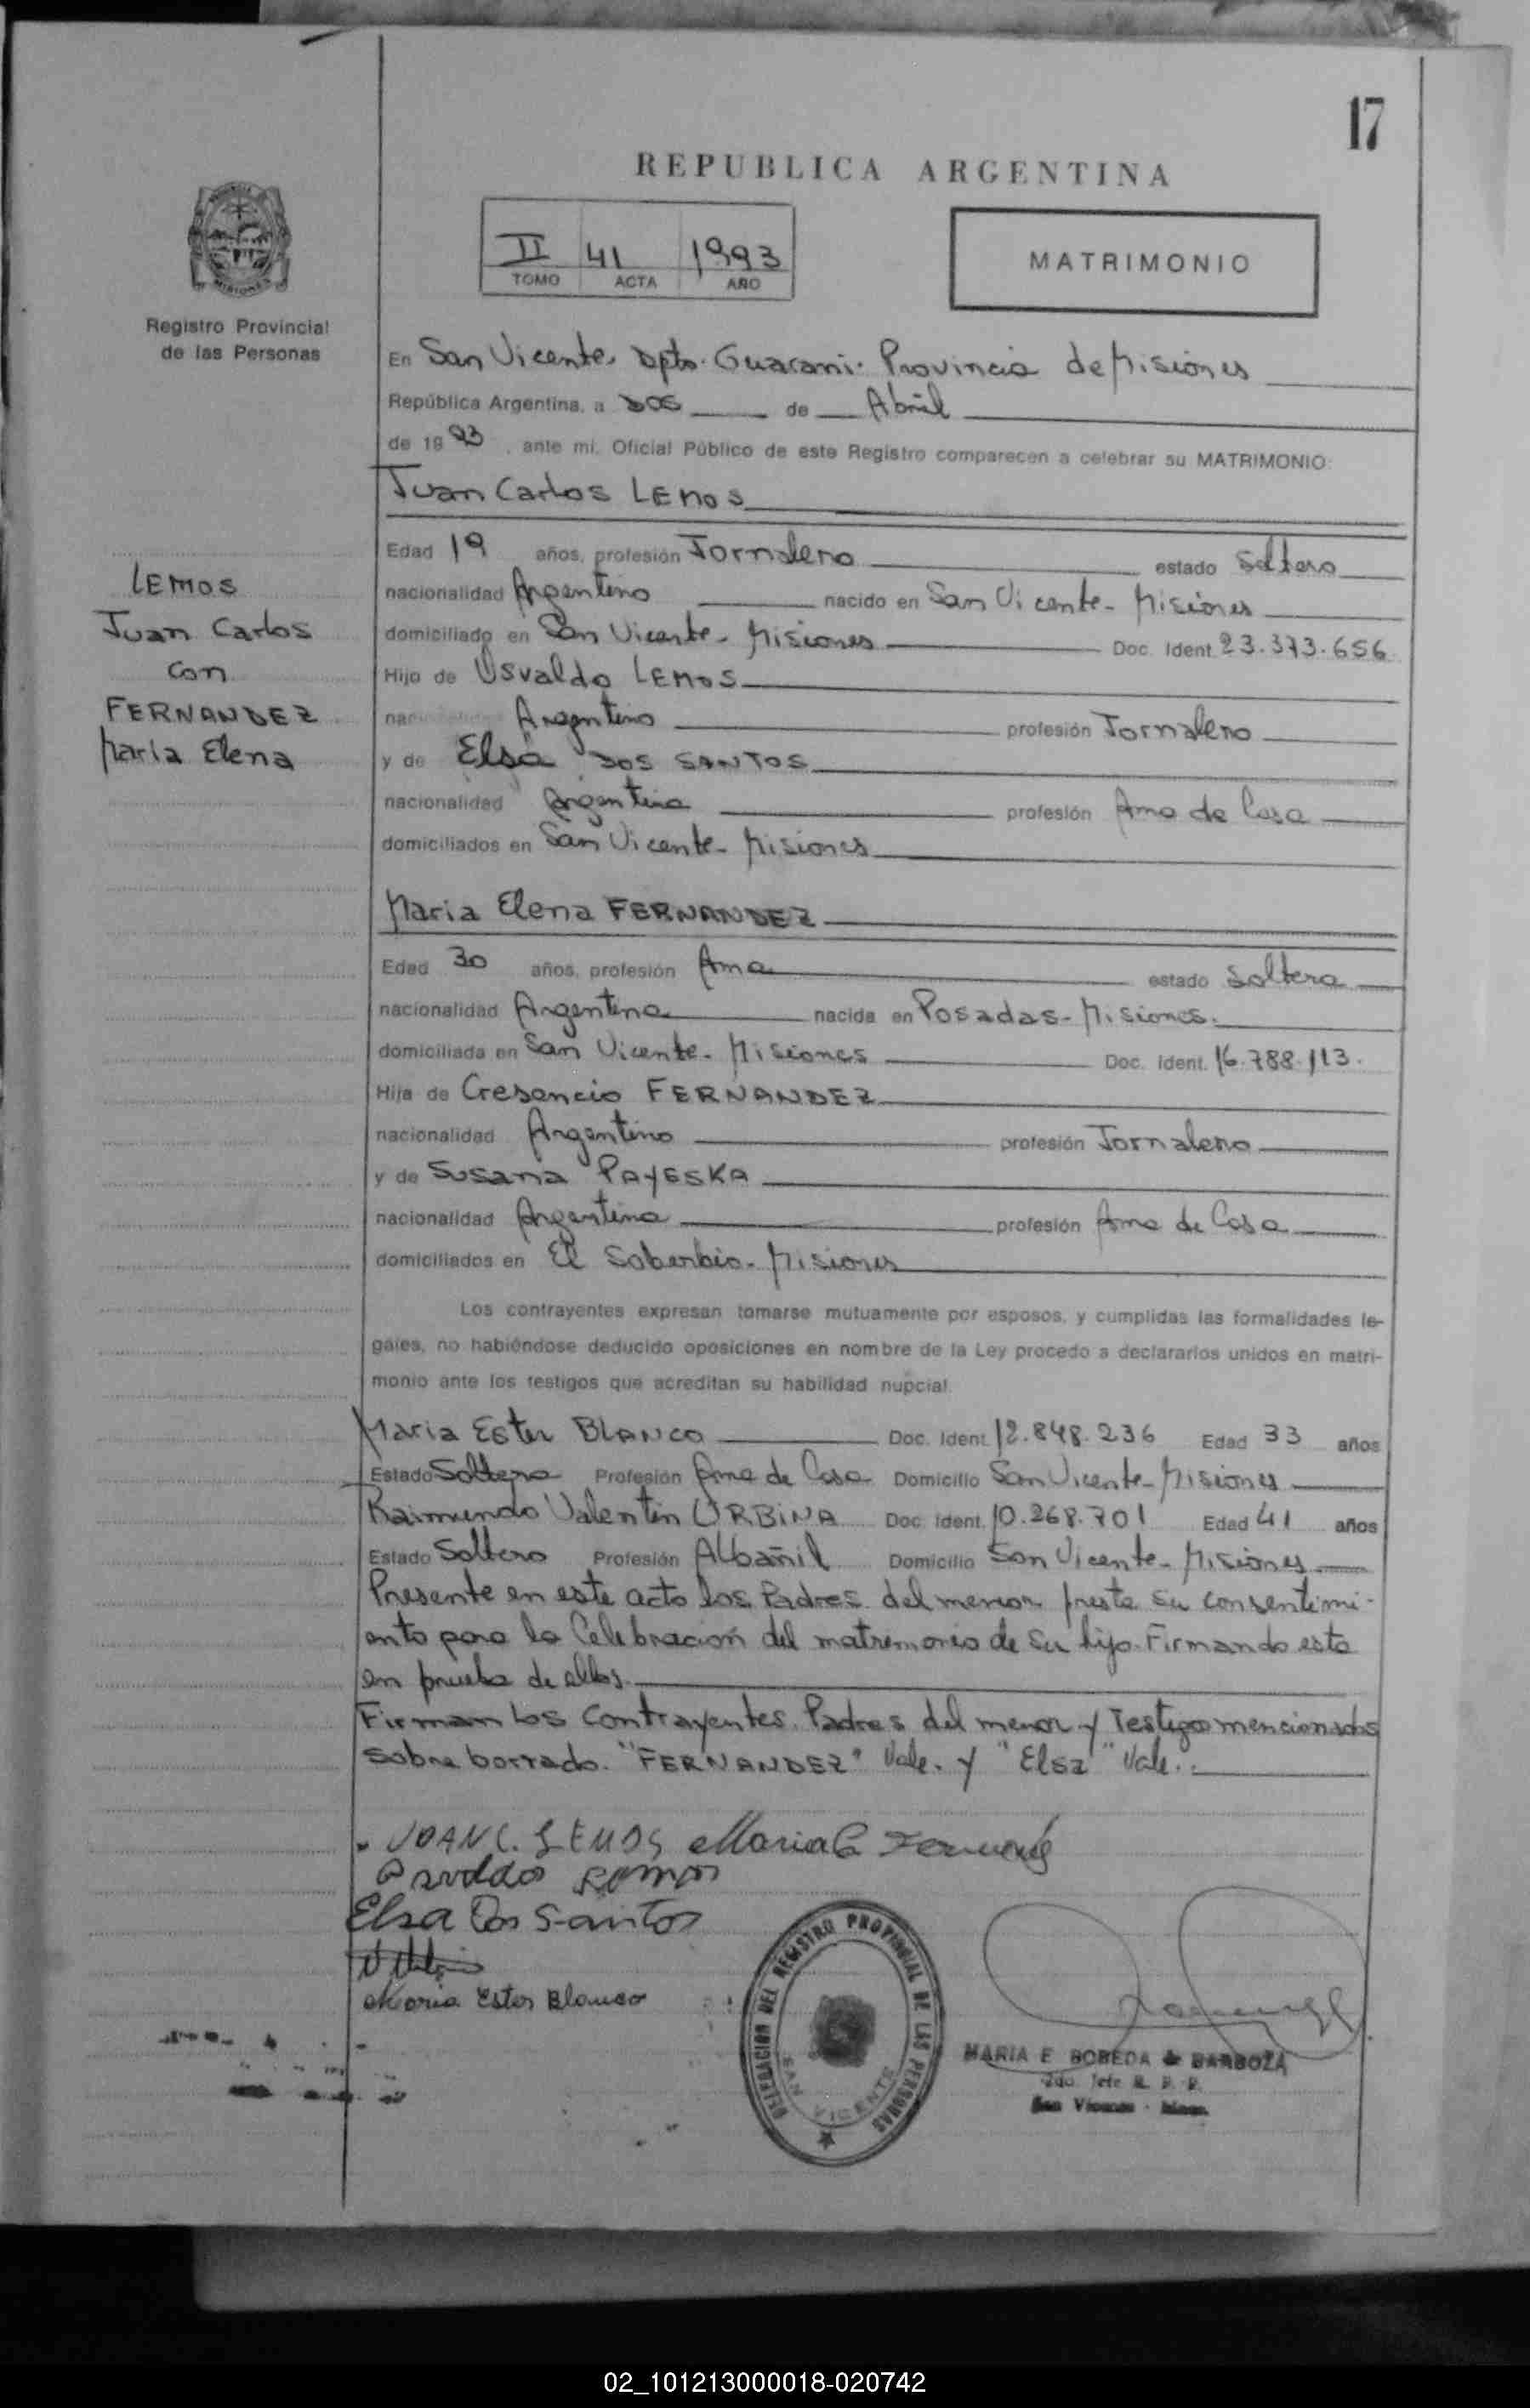 17
REPUBLICA ARGENTINA
II 41 1993
TOMO ACTA AÑO
MATRIMONIO
Registro Provincial
de las Personas
En San Vicente. Dpto. Guarani. Provincia de Misiones
República Argentina, a DOS de Abril
de 1993, ante mi, Oficial Público de este Registro comparecen a celebrar su MATRIMONIO:
Juan Carlos LEMOS
Edad 19 años, profesión Jornalero estado Soltero
nacionalidad Argentino nacido en San Vicente - Misiones
domiciliado en San Vicente - Misiones Doc. Ident. 23.373.656
Hijo de Osvaldo LEMOS
nacionalidad Argentino profesión Jornalero
y de Elsa DOS SANTOS
nacionalidad Argentina profesión Ama de Casa
domiciliados en San Vicente - Misiones
LEMOS
Juan Carlos
con
FERNANDEZ
Maria Elena
Maria Elena FERNANDEZ
Edad 30 años, profesión Ama estado Soltera
nacionalidad Argentina nacida en Posadas - Misiones.
domiciliada en San Vicente - Misiones Doc. Ident. 16.788.113.
Hija de Cresencio FERNANDEZ
nacionalidad Argentino profesión Jornalero
y de Susana PAYESKA
nacionalidad Argentina profesión Ama de Casa
domiciliados en El Soberbio - Misiones
Los contrayentes expresan tomarse mutuamente por esposos, y cumplidas las formalidades le-
gales, no habiéndose deducido oposiciones en nombre de la Ley procedo a declararlos unidos en matri-
monio ante los testigos que acreditan su habilidad nupcial.
Maria Ester BLANCO Doc. Ident. 12.848.236 Edad 33 años
Estado Soltera Profesión Ama de Casa Domicilio San Vicente - Misiones
Raimundo Valentin URBINA Doc. Ident. 10.268.701 Edad 41 años
Estado Soltero Profesión Albañil Domicilio San Vicente - Misiones
Presente en este acto los Padres del menor presta su consentimi-
ento para la Celebración del matrimonio de su hijo. Firmando esta
en prueba de ellos.
Firman los Contrayentes. Padres del menor y Testigos mencionados
Sobre borrado. "FERNANDEZ" Vale. y "Elsa" Vale.
JUAN C. LEMOS Maria E
Elsa Dos Santos
Maria Ester Blanco
DELEGACION DEL REGISTRO PROVINCIAL DE LAS PERSONAS
SAN VICENTE
MARIA E BOBEDA de BARBOZA
2do. Jefe R. P. P.
San Vicente - Mnes.
02_101213000018-020742